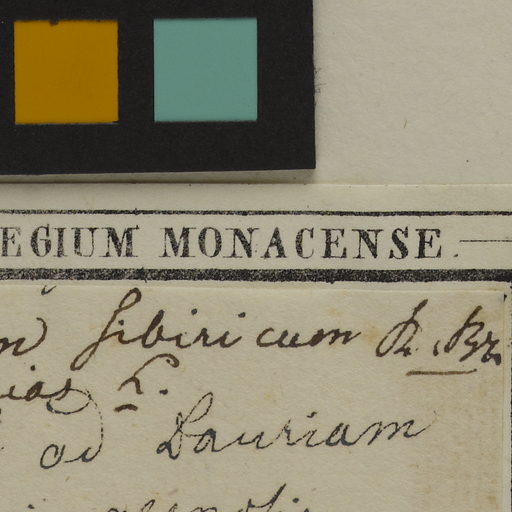 EGIUM MONACENSE
m sibiricum R. Br.
ias L.
ad Dauriam